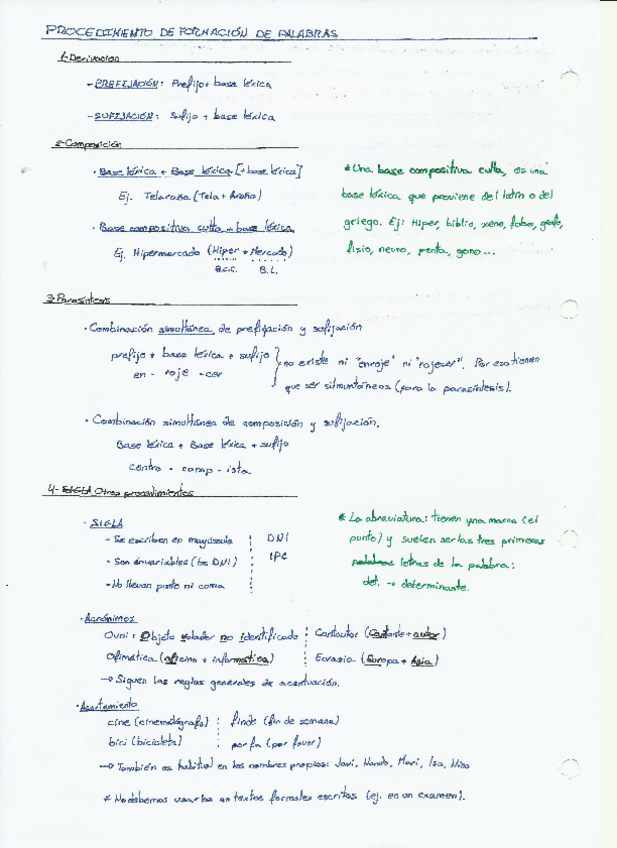 PROCEDIMIENTO DE FORMACIÓN DE PALABRAS
1-Derivación
- PREFIJACIÓN: Prefijo + base léxica
- SUFIJACIÓN: Sufijo + base léxica
2-Composición
· Base léxica + Base léxica [+ base léxica]
Ej. Telaraña (Tela + Araña)
· Base compositiva culta + base léxica
Ej. Hipermercado (Hiper + Mercado)
B.C.C. B.L.
* Una base compositiva culta, es una
base léxica que proviene del latín o del
griego. Ej: Hiper, biblio, xeno, fobo, geo,
fisio, neuro, penta, gono...
3-Parasíntesis
· Combinación simultánea de prefijación y sufijación
prefijo + base léxica + sufijo
en - roje - cer
no existe ni "enroje" ni "rojecer". Por eso tienen
que ser silmuntáneos (para la parasíntesis).
· Combinación simultánea de composición y sufijación.
Base léxica + Base léxica + sufijo
centro - camp - ista
4- SIGLA Otros procedimientos
· SIGLA
- Se escriben en mayúscula
- Son invariables (los DNI)
- No llevan punto ni coma
DNI
IPC
* La abreviatura: tienen una marca (el
punto) y suelen ser las tres primeras
palabras letras de la palabra:
det. → determinante.
· Acrónimos
Ovni: Objeto volador no identificado
Cantautor (Cantante + autor)
Ofimática (oficina + informática)
Eurasia (Europa + Asia)
→ Siguen las reglas generales de acentuación.
· Acortamiento
cine (cinematógrafo)
finde (fin de semana)
bici (bicicleta)
porfa (por favor)
→ También es habitual en los nombres propios: Javi, Nando, Mari, Isa, Nino
* No debemos usarlos en textos formales escritos (ej. en un examen).